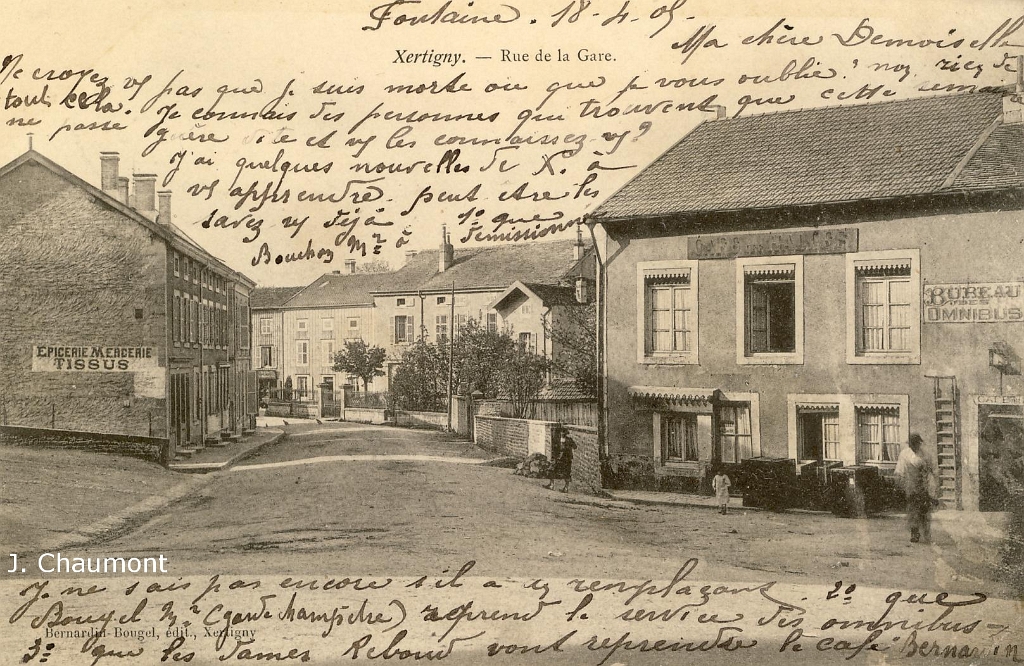 Fontaine. 18-4-05.
Xertigny. — Rue de la Gare.
Ma chère Demoiselle
Ne croyez vs pas que je suis morte ou que je vous oublie? non, riez de
tout cela. Je connais des personnes qui trouvent que cette semaine
ne passe guère vite et vs les connaissez vs?
J'ai quelques nouvelles de X. à
vs apprendre. peut être les
savez vs déjà. 1º que
Bouchon Mr à démissionné
EPICERIE MERCERIE
TISSUS
BUREAU
DES
OMNIBUS
J. Chaumont
Je ne sais pas encore s'il a un remplaçant. 2º que
Bougel Mr (garde champêtre) reprend le service des omnibus -
Bernardin-Bougel, édit., Xertigny
3º que les dames Reboud vont reprendre le café Bernardin